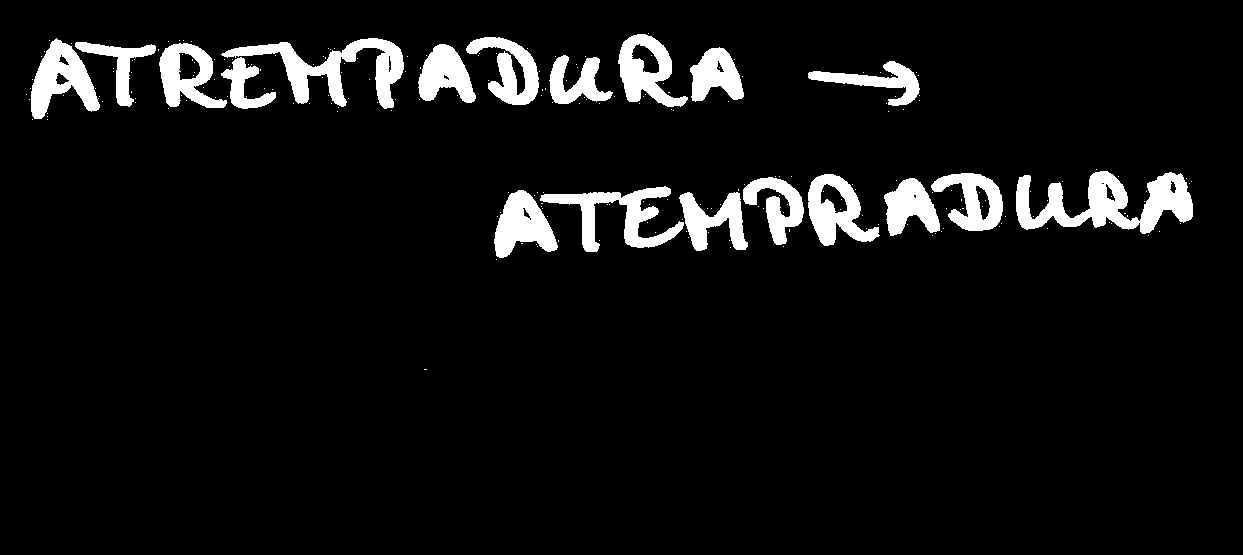 ATREMPADURA →
ATEMPRADURA